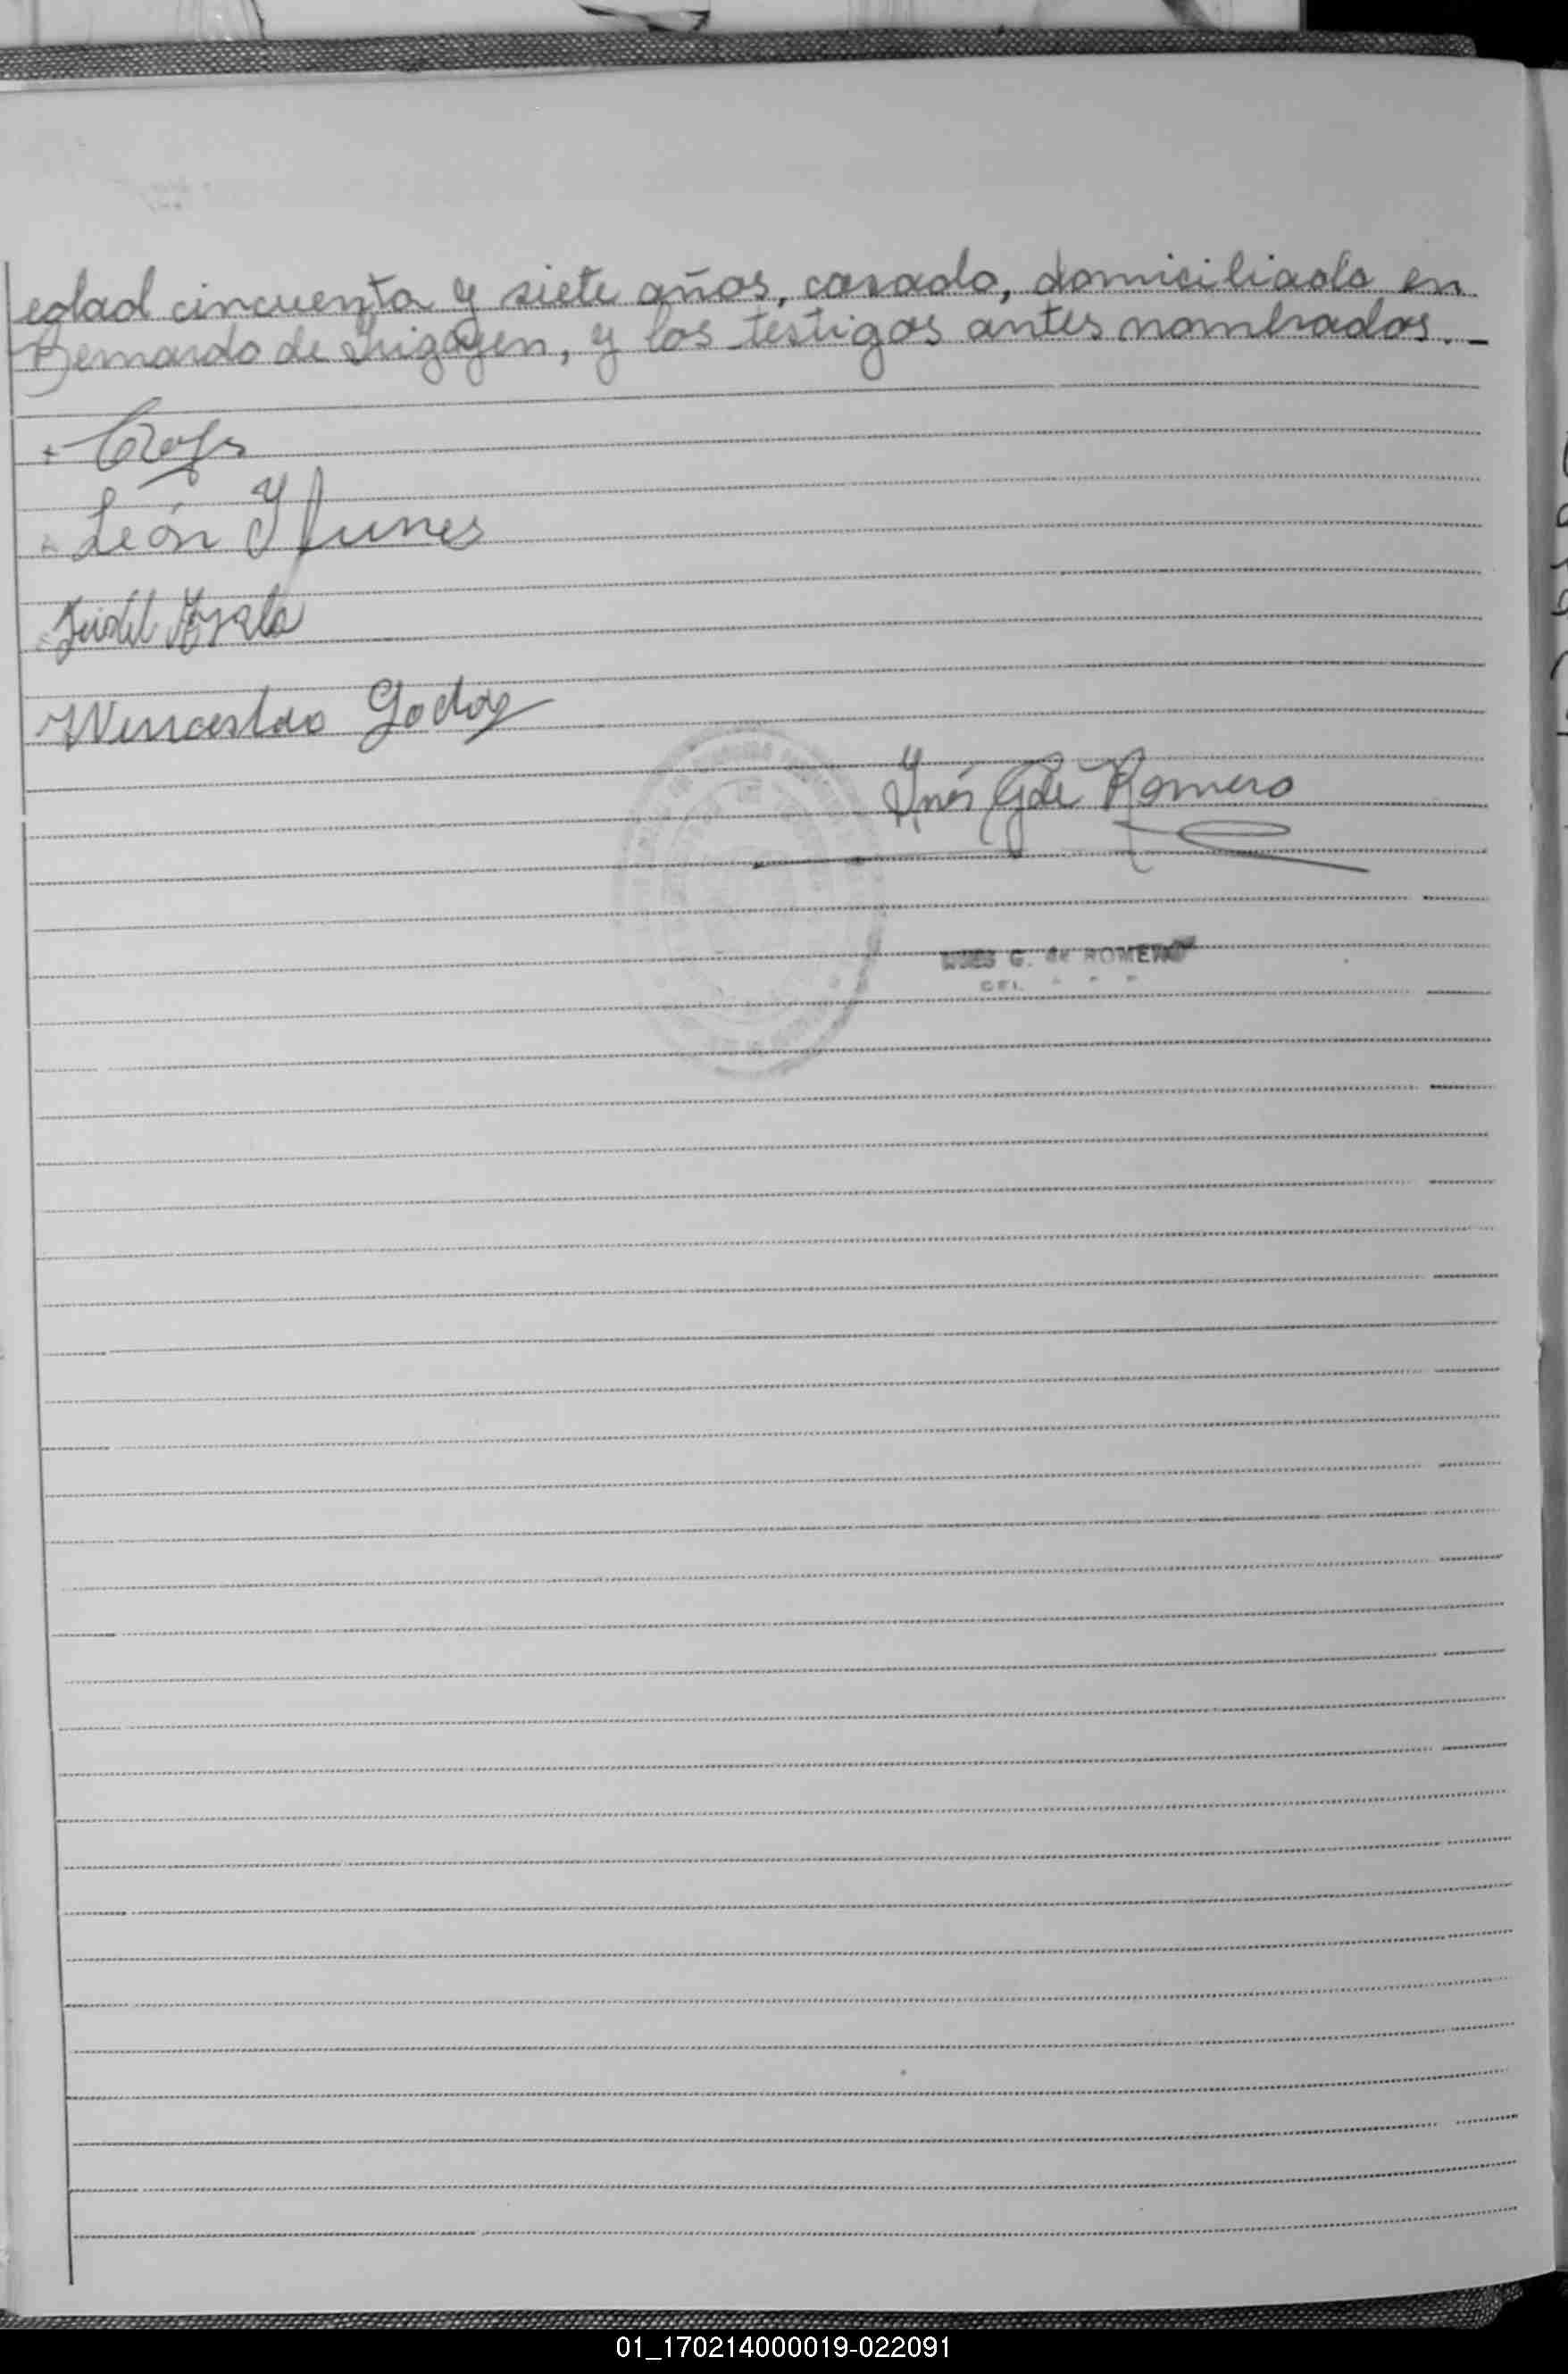 edad cincuenta y siete años, casado, domiciliado en
Bernardo de Irigoyen, y los testigos antes nombrados. _
León Y Funes
Fidel Ayala
Wenceslao Godoy
Inés G de Romero
INES G. de ROMERO
01_170214000019-022091